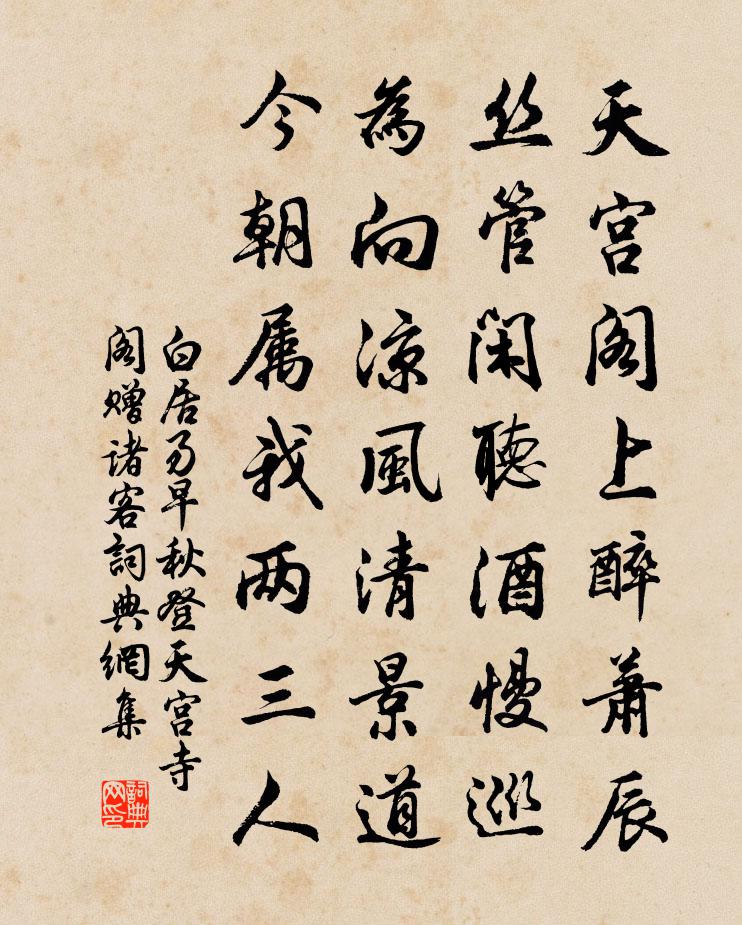 天宮阁上醉萧辰
丝管闲聽酒慢巡
為向凉風清景道
今朝属我两三人
白居易早秋登天宮寺
阁赠诸客詞典網集
詞典网印